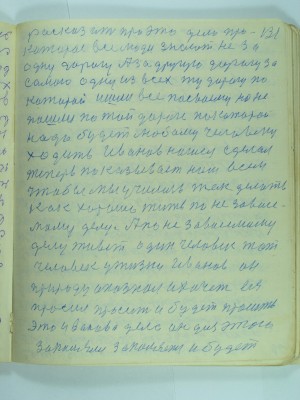 рассказ от про это дело про- 131
которае все люди знают не за
одну дарогу А за другую дарогу за
самою одну из всех ту дарогу по
которай ишли все посвоему но не
пашли по той дароге по которой
надо будет любому человеку
ходить Иванов нашел сделал
теперь показывает нам всем
чтобы мы учились так делать
как хорошо тоже по не зависи-
мому делу. А по не зависимому
делу живет один человек тот
человек у жизни Иванов он
природу осознал и хочет ее
просил просит и будет просить
Это Иванова дела он для этого
закалялся закаляется и будет